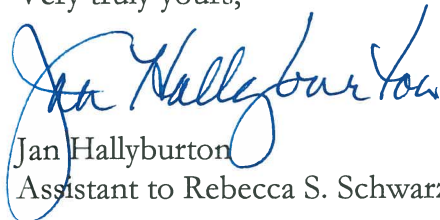 Very truly yours,
Jan Hallyburton
Jan Hallyburton
Assistant to Rebecca S. Schwarz